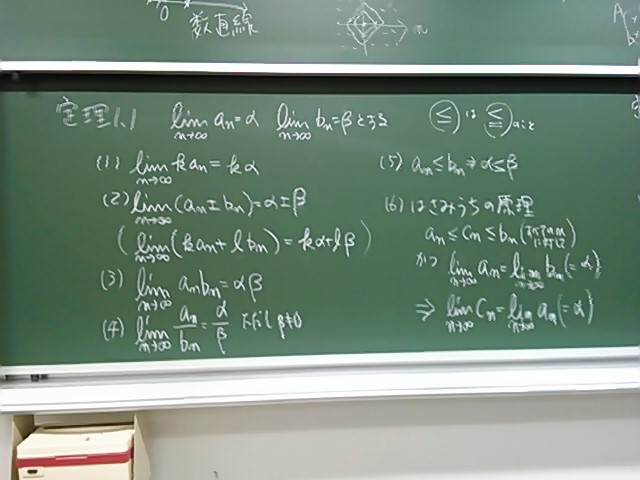 0
数直線
A
定理1.1 lim_{n→∞} aₙ=α lim_{n→∞} bₙ=βとする
(≤)は(≦)
(1) lim_{n→∞} kaₙ=kα
(2) lim_{n→∞} (aₙ±bₙ)=α±β
( lim_{n→∞} (kaₙ+lbₙ)=kα+lβ )
(3) lim_{n→∞} aₙbₙ=αβ
(4) lim_{n→∞} aₙ/bₙ=α/β ただしβ≠0
(5) aₙ≤bₙ⇒α≤β
(6) はさみうちの原理
aₙ≤cₙ≤bₙ(すべてのnに対して)
かつ lim_{n→∞} aₙ=lim_{n→∞} bₙ(=α)
⇒ lim_{n→∞} cₙ=lim_{n→∞} aₙ(=α)